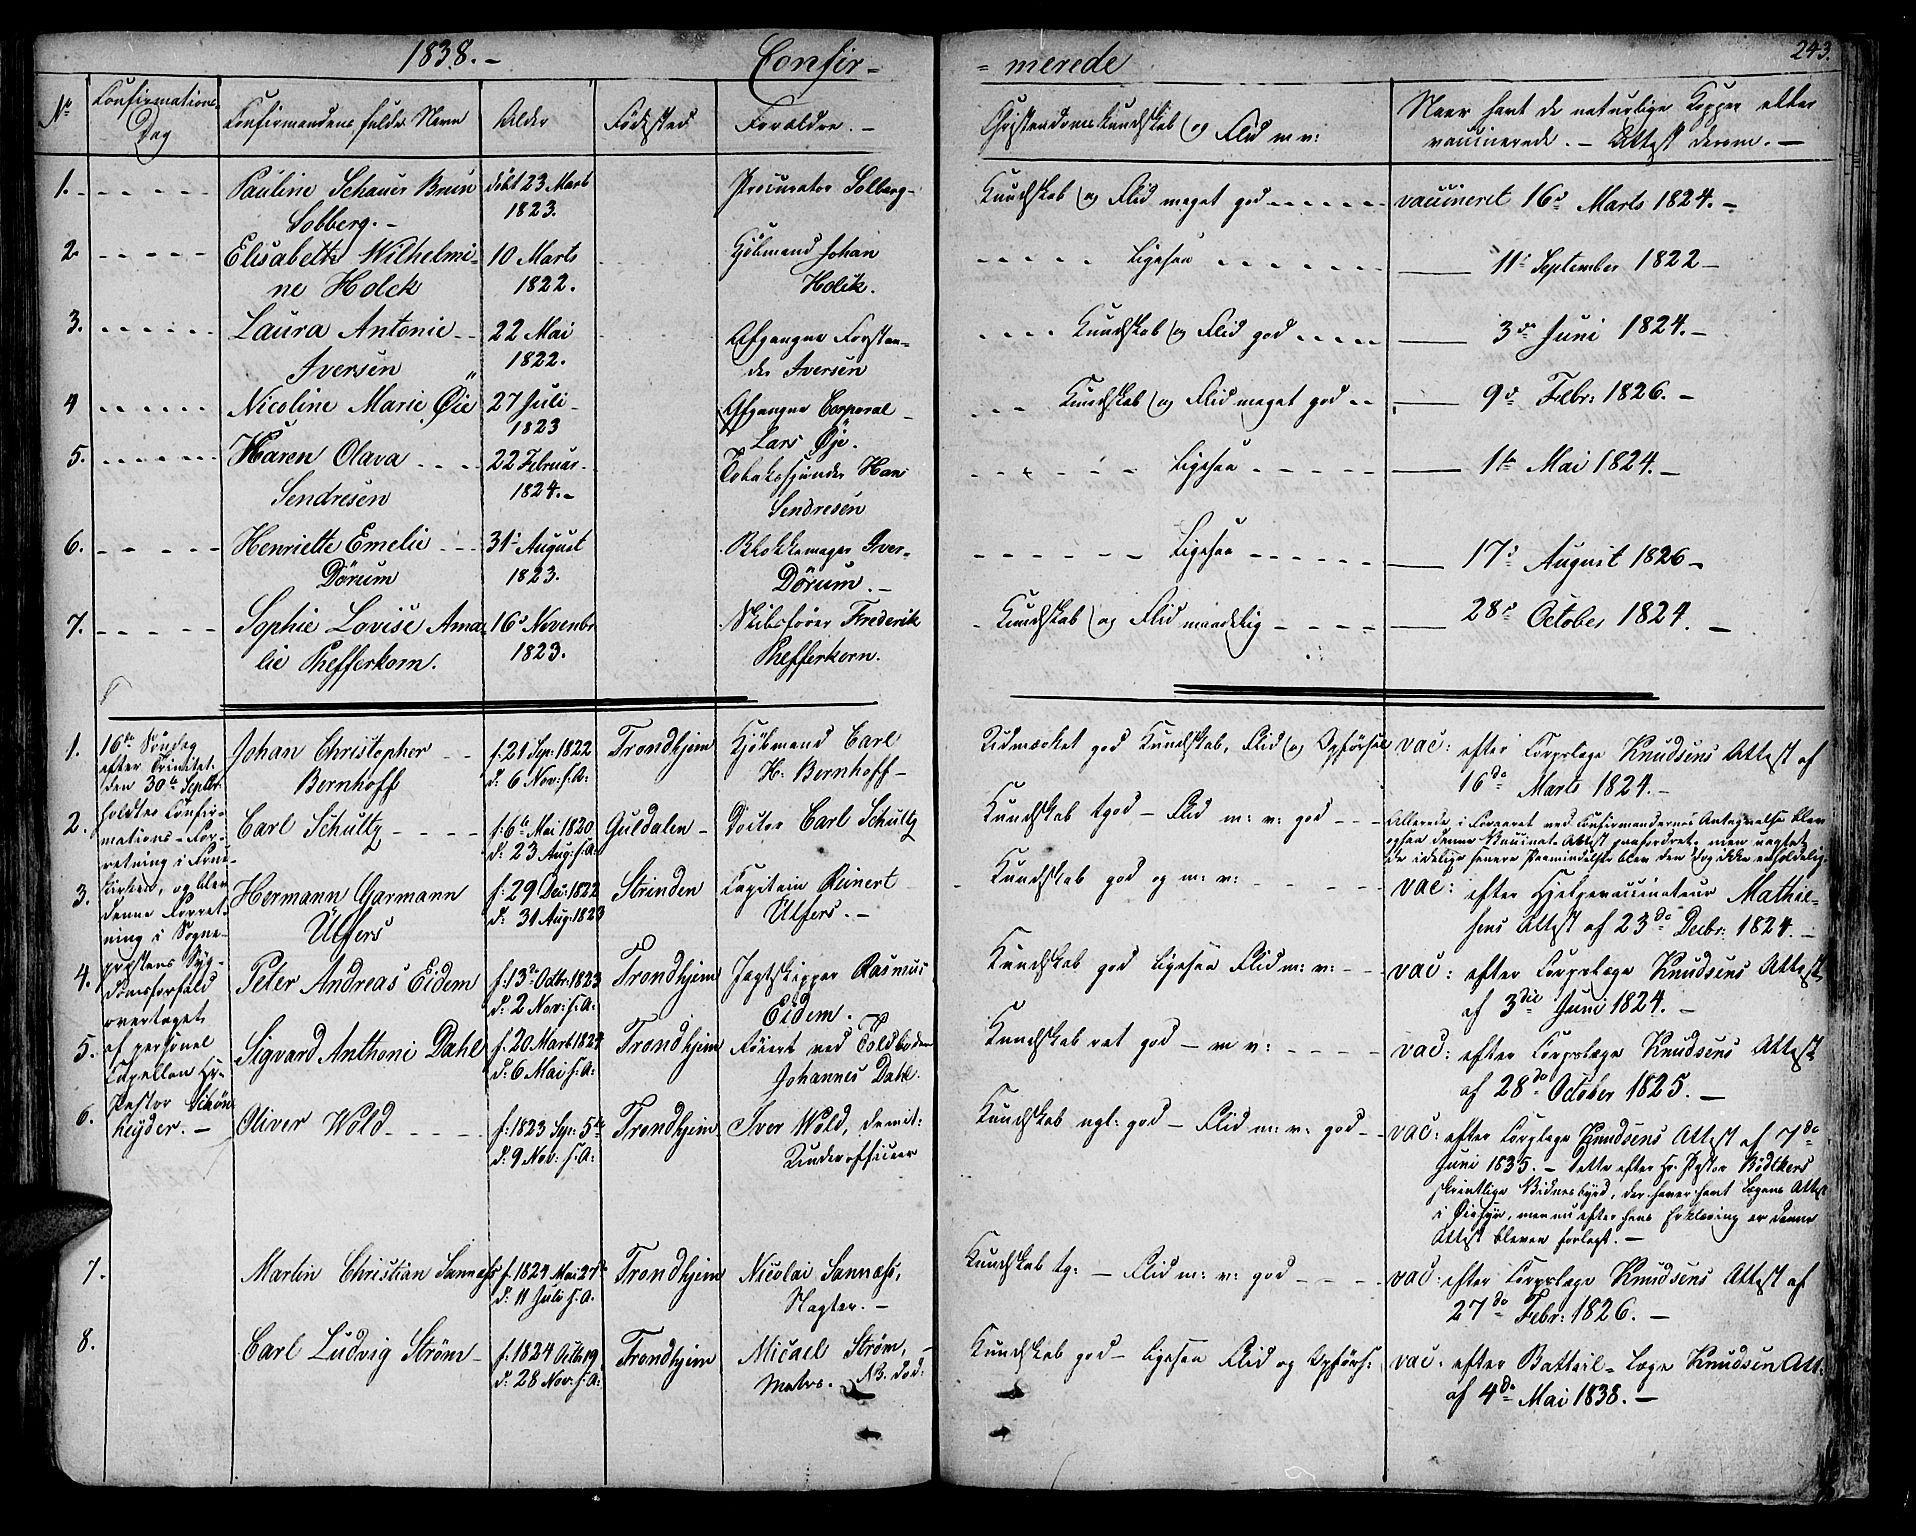 1838. - Confir-
- merede
243.
No
Confirmations Dag
Confirmandens fulde Navn
Alder
Fødested
Forældre. -
Christendoms Kundskab og Flid m v:
Naar havt de naturlige Kopper eller
vaccinerede. - Attest derom. -
1. Pauline Schauer Brun
Solberg. -
døbt 23 Marts
1823.
Procurator Solberg -
Kundskab og Flid meget god
vaccineret 16d Marts 1824. -
2 Elisabeth Wilhelmi-
ne Holck
10 Marts
1822.
Kjøbmand Johan
Holck.
Ligesaa
11d September 1822 -
3. Laura Antonie
Iversen
22 Mai
1822.
Afgangne Forstan-
der Iversen
Kundskab og Flid god
3de Juni 1824. -
4 Nicoline Marie Øie
27 Juli
1823
Afgangne Corporal
Lars Øje.
Kundskab og Flid meget god
9d Febr: 1826. -
5. Karen Olava
Sendresen
22 Februar
1824. -
Tobaksspinder Han
Sendresen
Ligesaa
1te Mai 1824. -
6. Henriette Emelie
Dørum
31 August
1823.
Blokkemager Iver
Dørum. -
Ligesaa
17d August 1826 -
7. Sophie Lovise Ama-
lie Phefferkorn.
16d Novembr
1823.
Skibsfører Frederik
Phefferkorn.
Kundskab og Flid maadelig
28d October 1824. -
16de Søndag
efter Trinitat:
den 30te Septbr.
holdtes Confir-
mations-For-
retning i Frue-
kirken, og blev
denne Forret-
ning i Sogne-
præstens Syg-
domsforfald
overtaget
af personel
Capellan Hr.
Pastor Schøn-
heyder. -
1. Johan Christopher
Bernhoff
f: 21 Sep: 1822
d: 6 Nov: s. A:
Trondhjem
Kjøbmand Carl
H. Bernhoff -
Udmærket god Kundskab, Flid og Opførsel
vac: efter Corpslæge Knudsens Attest af
16de Marts 1824. -
2. Carl Schultz
f: 6te Mai 1820
d: 23 Aug: s. A:
Guldalen -
Doctor Carl Schultz
Kundskab tgod - Flid m: v: god
Allerede i Foraaret ved Confirmandernes Antagelse blev
ogsaa denne Vaccinat. Attest paafordret, men uagtet
de idelige senere Paamindelser blev den dog ikke erholdelig.
3. Hermann Garmann
Ulfers
f: 29 Dec: 1822
d: 31 Aug: 1823
Strinden
Capitain Reinert
Ulfers. -
Kundskab god og m: v:
vac: efter Hjelpevaccinateur Mathie-
sens Attest af 23de Decbr: 1824. -
4. Peter Andreas Eidem
f: 13de Octbr: 1823
d: 2 Nov: s. A:
Trondhjem
Jagtskipper Rasmus
Eidem. -
Kundskab god ligesaa Flid m: v:
vac: efter Corpslæge Knudsens Attest
af 3die Juni 1824. -
5. Sigvard Anthoni Dahl
d: 6 Mai s. A:
Trondhjem
ved Toldboden
Johannes Dahl.
Kundskab ret god - m v:
vac: efter Corpslæge Knudsens Attest
af 28de October 1825. -
6. Oliver Wold
f: 1823 Sep: 5te
d: 9 Nov: s. A:
Trondhjem
Iver Wold, demit:
Underofficeer
Kundskab ngl: god - Flid m: v: god
vac: efter Corpslæge Knudsens Attest af 7de
Juni 1835. - dette efter Hr. Pastor Bødtkers
skriftlige Vidnesbyrd, der haver havt Lægens Attest
i Øiesyn, men nu efter hans Erklæring er denne
Attest bleven forlagt. -
7. Martin Christian Sannæss
f. 1824 Mai 27de
d: 11 Julii s. A.
Trondhjem
Nicolai Sannæss,
Vægter. -
Kundskab tg: - Flid m: v: god
vac: efter Corpslæge Knudsens Attest af
27de Febr: 1826. -
8. Carl Ludvig Strøm -
f. 1824 Octb: 19
d: 28 Nov: s. A:
Trondhjem
Micael Strøm,
Matros. NB. død.
Kundskab god - ligesaa Flid og Opførs:
vac: efter Batteil-Læge Knudsen Att:
af 4de Mai 1838. -